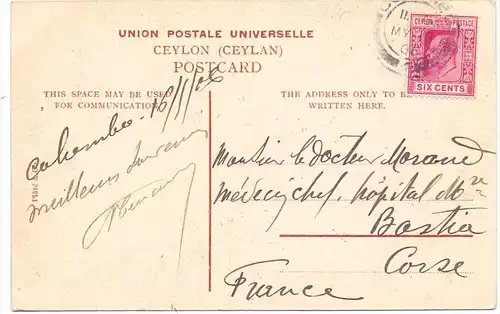 UNION POSTALE UNIVERSELLE
CEYLON (CEYLAN)
POSTCARD
CEYLON POSTAGE
SIX CENTS
THIS SPACE MAY BE USED
FOR COMMUNICATION
THE ADDRESS ONLY TO BE
WRITTEN HERE.
Colombo. 16/5/06
meilleurs souvenirs
Monsieur le Docteur Morand
Médecin chef, hôpital Mre
Bastia
Corse
France
Plâté &